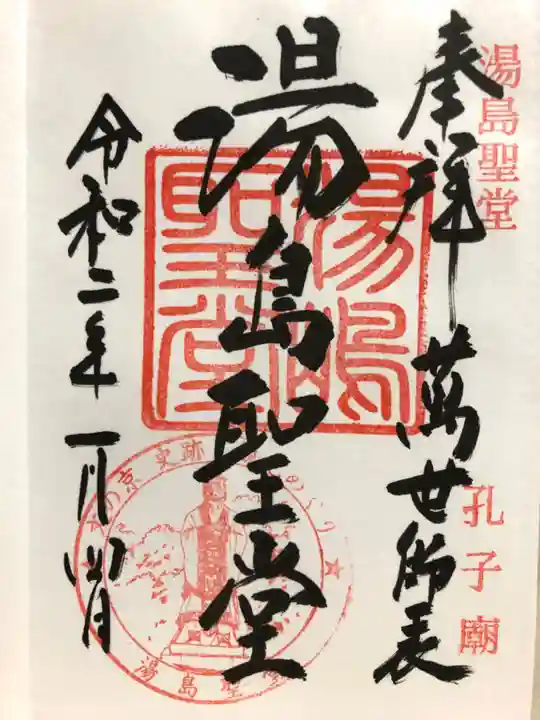 湯島聖堂
孔子廟
奉拝
萬世師表
湯島聖堂
湯島聖堂
令和二年一月四日
史跡
湯島聖堂